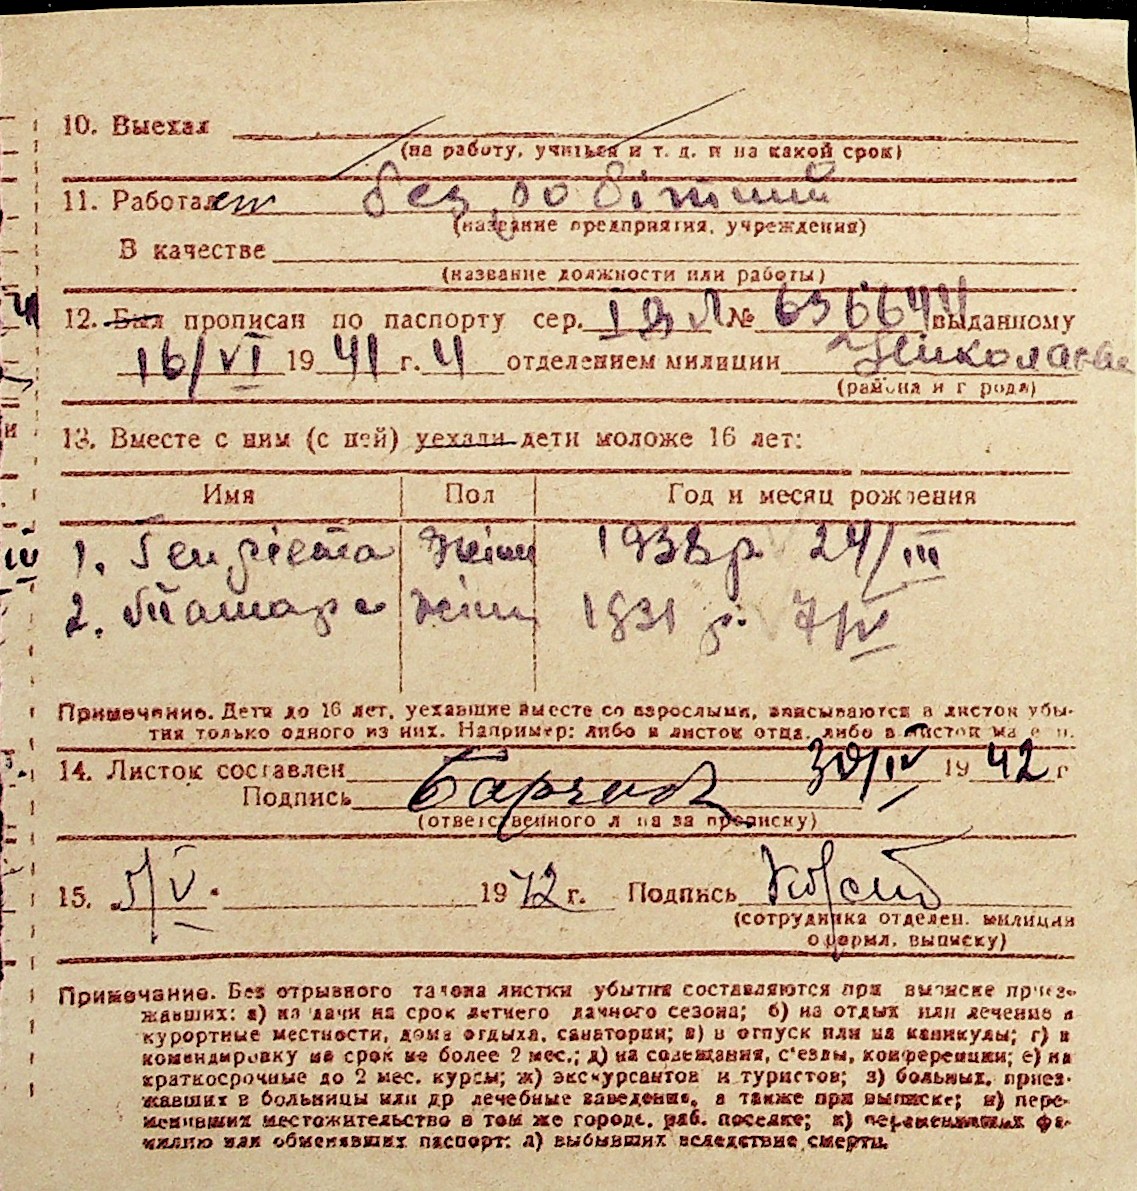 10. Выехал
(на работу, учиться и т. д. и на какой срок)
11. Работает безробітний
(название предприятия, учреждения)
В качестве
(название должности или работы)
12. Был прописан по паспорту сер. № выданному
16/VI 1941 г. 4 отделением милиции Николаева
(района и города)
13. Вместе с ним (с ней) уехали дети моложе 16 лет:
Имя Пол Год и месяц рождения
1. 1938 р 24/III
2. Тамара 1931 р. 7/IV
Примечание. Дети до 16 лет, уехавшие вместе со взрослыми, вписываются в листок убы-
тия только одного из них. Например: либо в листок отца, либо в листок матери.
14. Листок составлен 30/IV 1942 г
Подпись
(ответственного лица за прописку)
15. 5/V. 1942 г. Подпись
(сотрудника отделен. милиции
оформл. выписку)
Примечание. Без отрывного талона листки убытия составляются при выписке приез-
жавших: а) на дачи на срок летнего дачного сезона; б) на отдых или лечение в
курортные местности, дома отдыха, санатории; в) в отпуск или на каникулы; г) в
командировку на срок не более 2 мес.; д) на совещания, с'езды, конференции; е) на
краткосрочные до 2 мес. курсы; ж) экскурсантов и туристов; з) больных, приез-
жавших в больницы или др лечебные заведения, а также при выписке; и) пере-
менивших местожительство в том же городе, раб. поселке; к) переменивших фа-
милию или обменявших паспорт; л) выбывших вследствие смерти.